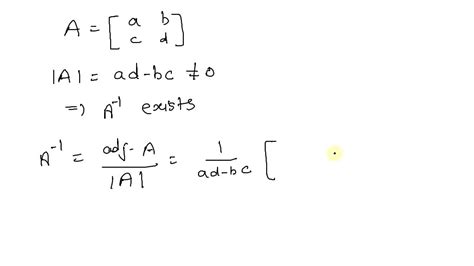 A = [ a b
c d ]
|A| = ad-bc ≠0
=> A⁻¹ exists
A⁻¹ = adj- A / |A| = 1 / ad-bc [